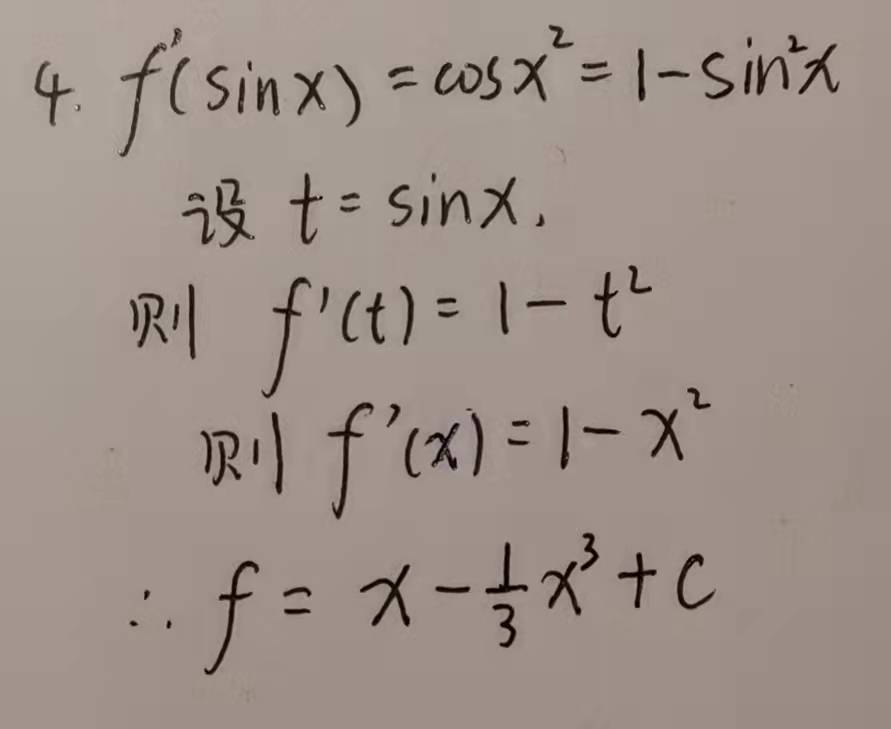 4. f'(sinx) = cosx² = 1-sin²x
设 t = sinx,
则 f'(t) = 1 - t²
则 f'(x) = 1 - x²
∴ f = x - 1/3 x³ + C